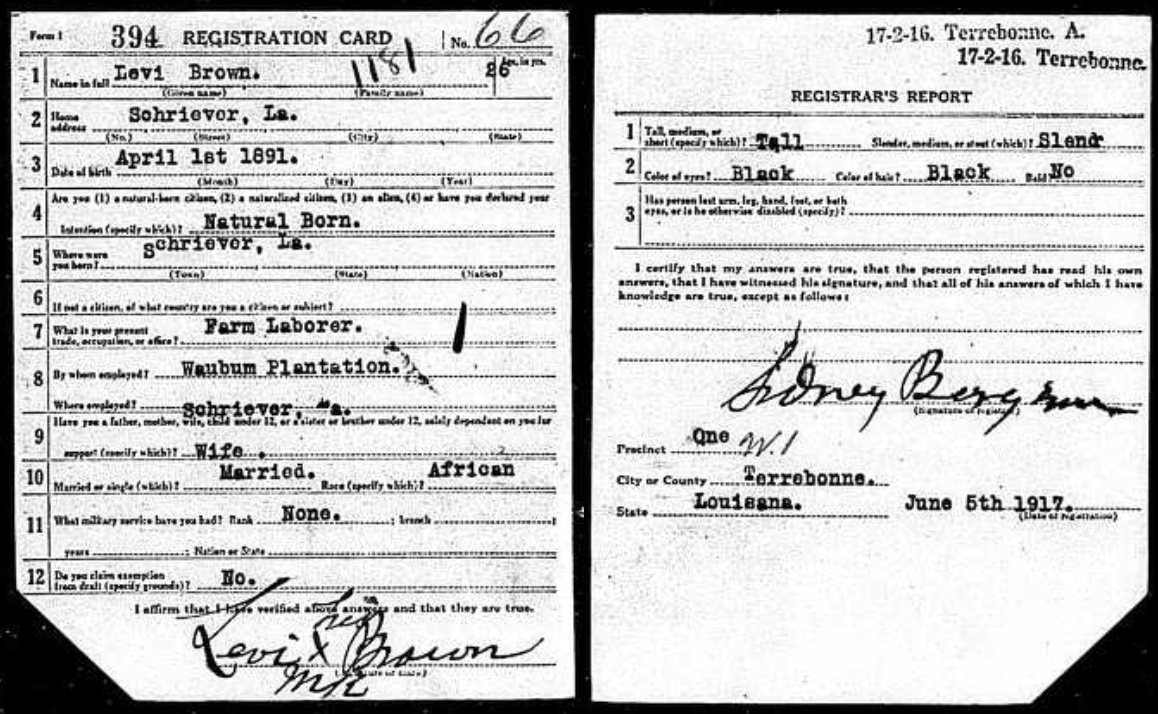 Form 1 394 REGISTRATION CARD No. 66
1 Name in full Levi Brown. 1181 26 Age, in yrs.
(Given name) (Family name)
2 Home address Schriever, La.
(No.) (Street) (City) (State)
3 Date of birth April 1st 1891.
(Month) (Day) (Year)
4 Are you (1) a natural-born citizen, (2) a naturalized citizen, (3) an alien, (4) or have you declared your
intention (specify which)? Natural Born.
5 Where were you born? Schriever, La.
(Town) (State) (Nation)
6 If not a citizen, of what country are you a citizen or subject?
7 What is your present trade, occupation, or office? Farm Laborer.
8 By whom employed? Waubum Plantation.
Where employed? Schriever, La.
9 Have you a father, mother, wife, child under 12, or a sister or brother under 12, solely dependent on you for
support (specify which)? Wife.
10 Married or single (which)? Married. Race (specify which)? African
11 What military service have you had? Rank None. ; branch ;
years ; Nation or State
12 Do you claim exemption from draft (specify grounds)? No.
I affirm that I have verified above answers and that they are true.
Levi X Brown
(Signature or mark)
17-2-16. Terrebonne. A.
17-2-16. Terrebonne.
REGISTRAR'S REPORT
1 Tall, medium, or short (specify which)? Tall Slender, medium, or stout (which)? Slendr
2 Color of eyes? Black Color of hair? Black Bald? No
3 Has person lost arm, leg, hand, foot, or both
eyes, or is he otherwise disabled (specify)?
I certify that my answers are true, that the person registered has read his own
answers, that I have witnessed his signature, and that all of his answers of which I have
knowledge are true, except as follows:
Sidney Bergman
(Signature of registrar)
Precinct One W.1
City or County Terrebonne.
State Louisana. June 5th 1917.
(Date of registration)